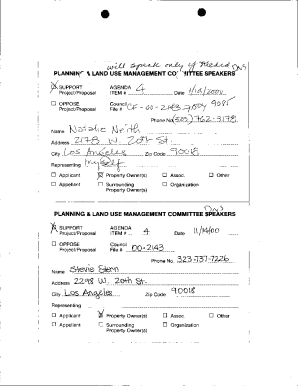 will speak only if needed DNS
PLANNING & LAND USE MANAGEMENT COMMITTEE SPEAKERS
SUPPORT Project/Proposal AGENDA ITEM # 4 Date
OPPOSE Project/Proposal Council File # CF-00-2143
Phone No.
Name Natalie Neith
Address 2178 W. 20th St
City Los Angeles Zip Code 90018
Representing Myself
Applicant Property Owner(s) Assoc. Other
Appellant Surrounding Property Owner(s) Organization
DNS
PLANNING & LAND USE MANAGEMENT COMMITTEE SPEAKERS
SUPPORT Project/Proposal AGENDA ITEM # 4 Date 11/14/00
OPPOSE Project/Proposal Council File # 00-2143
Phone No. 323-737-7226
Name Stevie Stern
Address 2298 W. 20th St.
City Los Angeles Zip Code 90018
Representing
Applicant Property Owner(s) Assoc. Other
Appellant Surrounding Property Owner(s) Organization